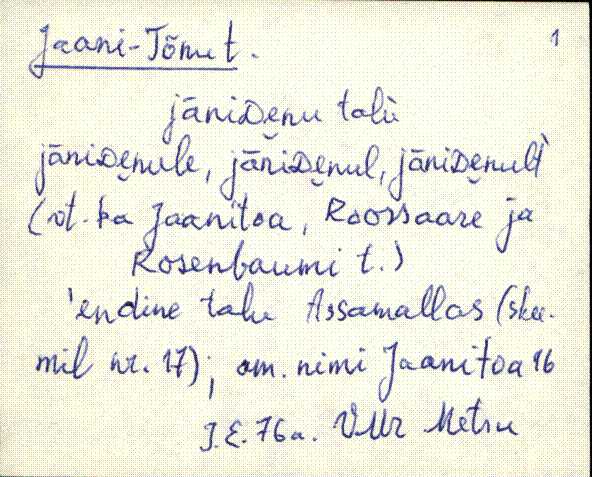 Jaani-Tõnu t. 1
jāniᴅe̮nu talù
jāniᴅe̮nule, jāniᴅe̮nul, jāniᴅe̮nult̀
(vt. ka Jaanitoa, Roossaare ja
Rosenbaumi t.)
'endine talu Assamallas (skee-
mil nr. 17); am. nimi Jaanitoa 16
J.E. 76a. VMr Metsu